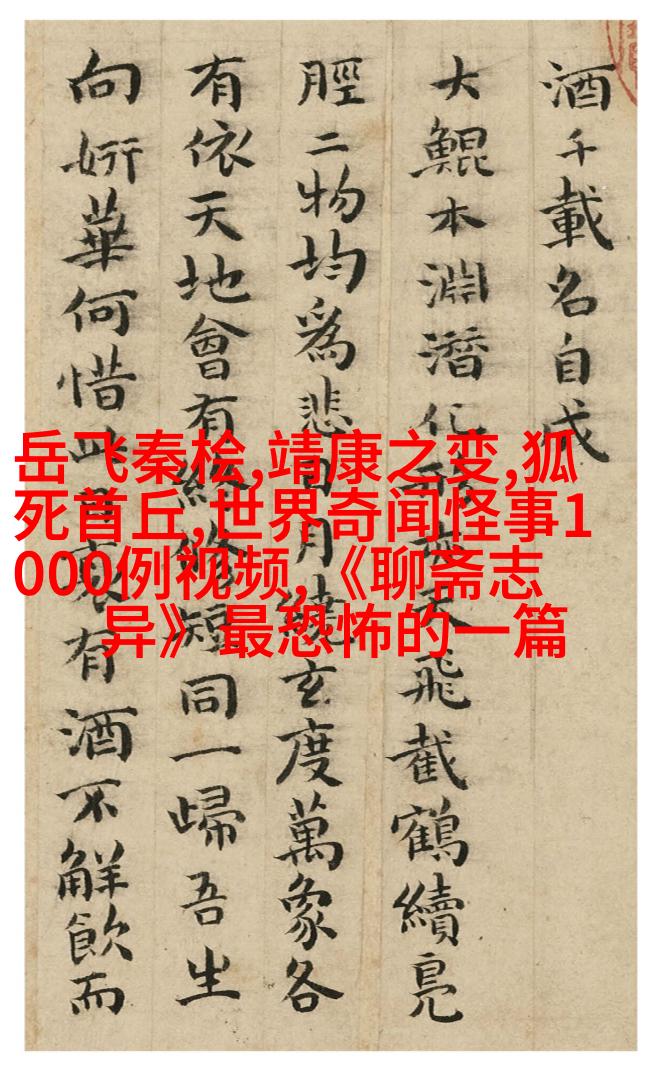 酒千載名自成
大鯤本淵潛化天飛截鶴續鳧
脛二物均爲悲日月繞玄度萬象各
有依天地會有終脩短同一歸吾生
向妍華何惜此衰有酒不解飲而
岳飞秦桧,靖康之变,狐
死首丘,世界奇闻怪事1
000例视频,《聊斋志
异》最恐怖的一篇